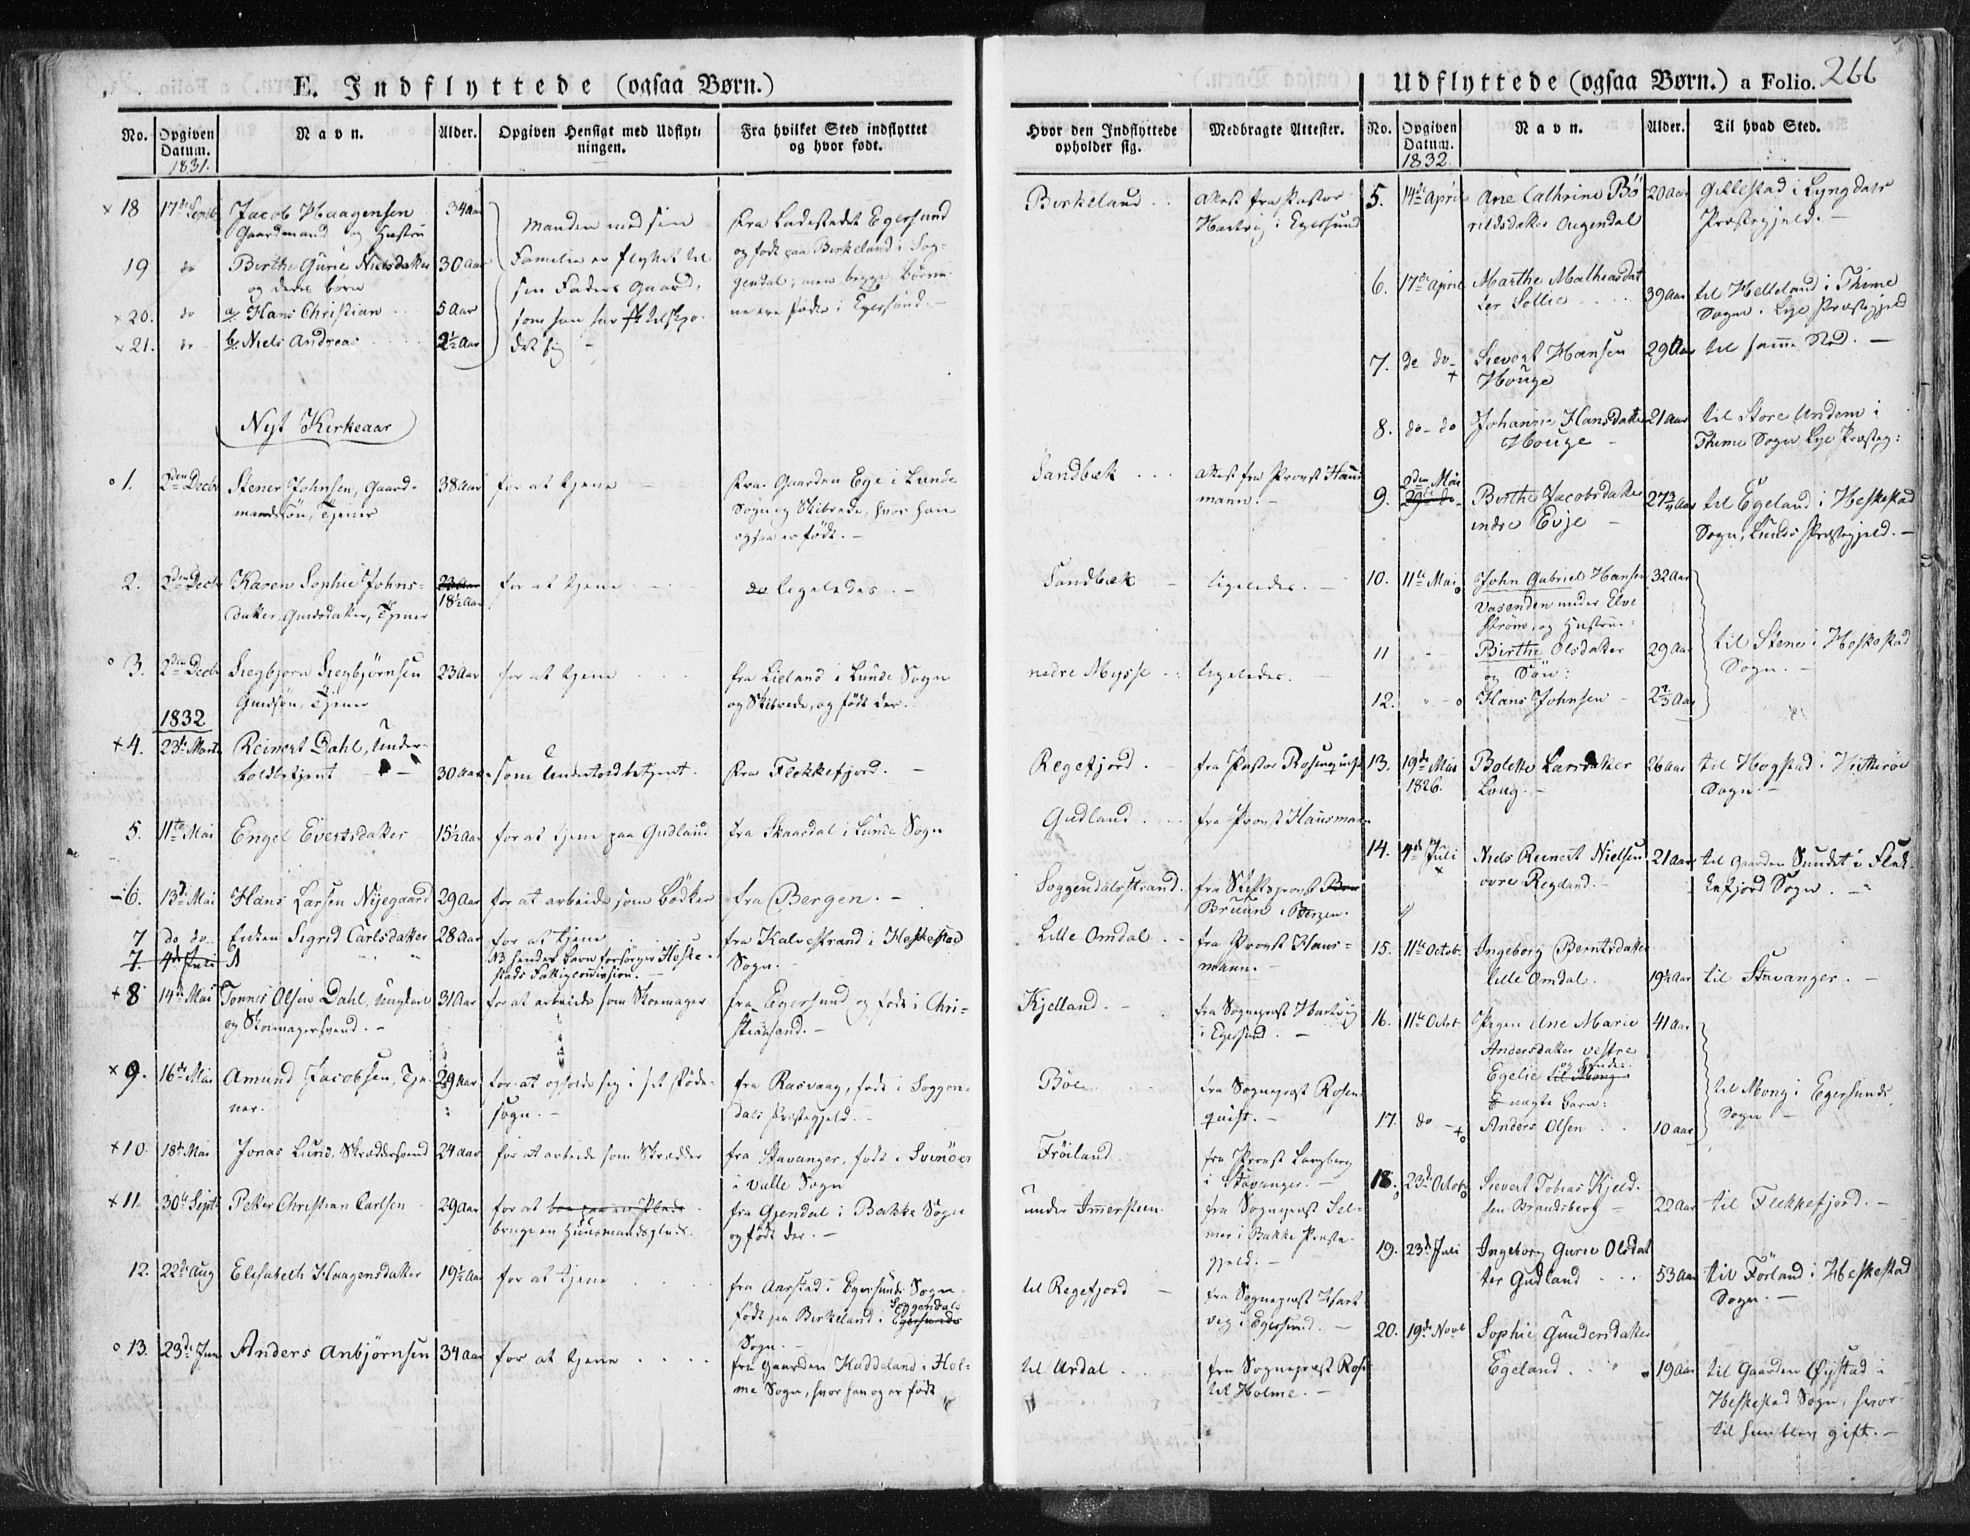 E. Indflyttede (ogsaa Børn.)
No.
Opgiven Datum.
1831.
Navn.
Alder.
Opgiven Hensigt med Udflyt-
ningen.
Fra hvilket Sted indflyttet
og hvor født.
Hvor den Indflyttede
opholder sig.
Medbragte Attester.
18 17de Septb Jacob Haagensen 34 Aar
Gaardmand og Hustru
19 do Berthe Gurie Nielsdatter 30 Aar
og deres børn
20. do a. Hans Christian 5 Aar
21. do b. Niels Andreas 2½ Aar
Manden med sin
Familie er flyttet til
sin Faders Gaard,
som han har tilskjø-
det sig
Fra Ladestedet Egersund
og født paa Birkeland i Sog-
gendal; men begge Børne-
ne ere fødte i Egersund.-
Birkeland
Attest fra Pastor
Hartvig i Egersund
Nyt Kirkeaar
1. 2den Decbr Stener Johnsen, Gaard- 38 Aar for at tjene
mandssøn, Tjener
Fra Gaarden Ege i Lunde
Sogn og Skibrede, hvor han
ogsaa er født.-
Sandbæk
Attest fra Provst Haus
mann.-
2. 2den Decbr Karen Sophie Johns- 18½ Aar for at tjene
datter, Gmdsdatter, Tjener
do ligeledes.-
Sandbæk ligeledes.-
3. 2den Decbr Siegbjørn Siegbjørnsen 23 Aar for at tjene
Gmdsøn, Tjener
fra Lieland i Lunde Sogn
og Skibrede, og født der.-
nedre Mysse ligeledes.
1832
4. 23de Marts Reinert Dahl, Under-
toldbetjent 30 Aar som Undertoldbetjent. Fra Flekkefjord.-
Regefjord. fra Pastor Rosenquist
5. 11te Mai Engel Evertsdatter 15½ Aar for at tjene paa Gudland fra Skaardal i Lunde Sogn
Gudland fra Provst Hausmann
6. 13de Mai Hans Larsen Nyegaard 29 Aar for at arbeide som Bødker fra Bergen.-
Soggendalsstrand. fra Stiftsprovst
Bruun i Bergen.
7 do do Enken Sigrid Carlsdatter 28 Aar for at tjene
7. 4de Juli N
NB hendes Barn forsørges Heske-
stads Fattigcommission.
fra Kalvestrand i Heskestad
Sogn.
Lille Omdal fra Provst Haus-
mann.-
8 14de Mai Tønnes Olsen Dahl, Ungkarl 31 Aar for at arbeide som Skomager
og Skomagersvend.-
fra Egersund og født i Chri-
stiansand.-
Kjelland fra Sognepræst Hartvig
i Egersund.-
9. 16de Mai Amund Jacobsen, Tje- 29 Aar for at opholde sig i sit føde-
ner. sogn.-
fra Rasvaag, født i Soggen-
dals Præstegjeld.-
Bøe fra Sognepræst Rosen-
quist.-
10. 18de Mai Jonas Lund, Skræddersvend 24 Aar for at arbeide som Skrædder
fra Stavanger, født i Svindes
i Valle Sogn
Frøiland. fra Provst Langberg
i Stavanger.-
11. 30te Septb Peter Christian Carlsen 29 Aar for at boe paa en Plads
bruge en Huusmandsplads.
fra Gjendal i Bakke Sogn
og født der.-
under Immersteen. fra Sognepræst Sel-
mer i Bakke Præste-
gjeld.-
12. 22de Aug Elisabeth Haagensdatter 19½ Aar for at tjene
fra Aarstad i Egersunds Sogn
Soggendals
født paa Birkeland i Egersunds
Sogn.-
til Regefjord fra Sognepræst Hart
vig i Egersund.-
13. 23de Jun Anders Anbjørnsen 34 Aar for at tjene
fra Gaarden Kuddeland i Hol-
me Sogn, hvor han og er født
til Urdal fra Sognepræst Rose
til Holme.-
Udflyttede (ogsaa Børn.) a Folio. 266
No.
Opgiven Datum.
1832.
Navn.
Alder.
Til hvad Sted.
5. 14de April Ane Cathrine Bø 20 Aar Gillestad i Lyngdals
rildsdatter Augendal Præstegjeld.-
6. 17de April Marthe Mathiasdat
ter Sollie 39 Aar til Helleland i Thime
Sogn, Lye Præstegjeld
7. do do Sievert Hansen 29 Aar til samme Sted.-
Houge
8. do do Johanne Hansdatter 21 Aar til Store Undem i
Houge Thime Sogn Lye Præsteg:
2den Mai
9. 29de do Berthe Jacobsdatter 27¾ Aar til Egeland i Heskestad
indre Evje Sogn, Lunds Præstegjeld.-
10. 11te Mai John Gabriel Hansen 32 Aar
Vasenden under Elve
strøm, og Hustrue:
11 Birthe Olsdatter 29 Aar til Stene i Heskestad
og Søn: Sogn.-
12. Hans Johnsen 2⅔ Aar
13. 19de Mai Bolette Larsdatter 26 Aar til Hogstad i Hitterøe
1826. Loug.- Sogn.-
14. 4de Juli Niels Reinert Nielsen 21 Aar til Gaarden Sundet i Flek-
øvre Regeland.- kefjord Sogn.-
15. 11te Octob. Ingeborg Berntsdatter
Lille Omdal. 19½ Aar til Stavanger.-
16. 11te Octob. Pigen Ane Marie 41 Aar
Andersdatter vestre
Egelie til Mong
uægte Barn:
til Mong i Egersunds
Sogn
17. do Anders Olsen 10 Aar
18. 23de Octob Sievert Tobias Kjeld-
sen Brandsberg 22 Aar til Flekkefjord.-
19. 23de Juli Ingeborg Gurie Olsdat
ter Gudland 53 Aar til Førland i Heskestad
Sogn.-
20. 19de Novb Sophie Gundersdatter
Egeland 19 Aar til Gaarden Øystad i
Heskestad Sogn, hvor
til hun blev gift.-